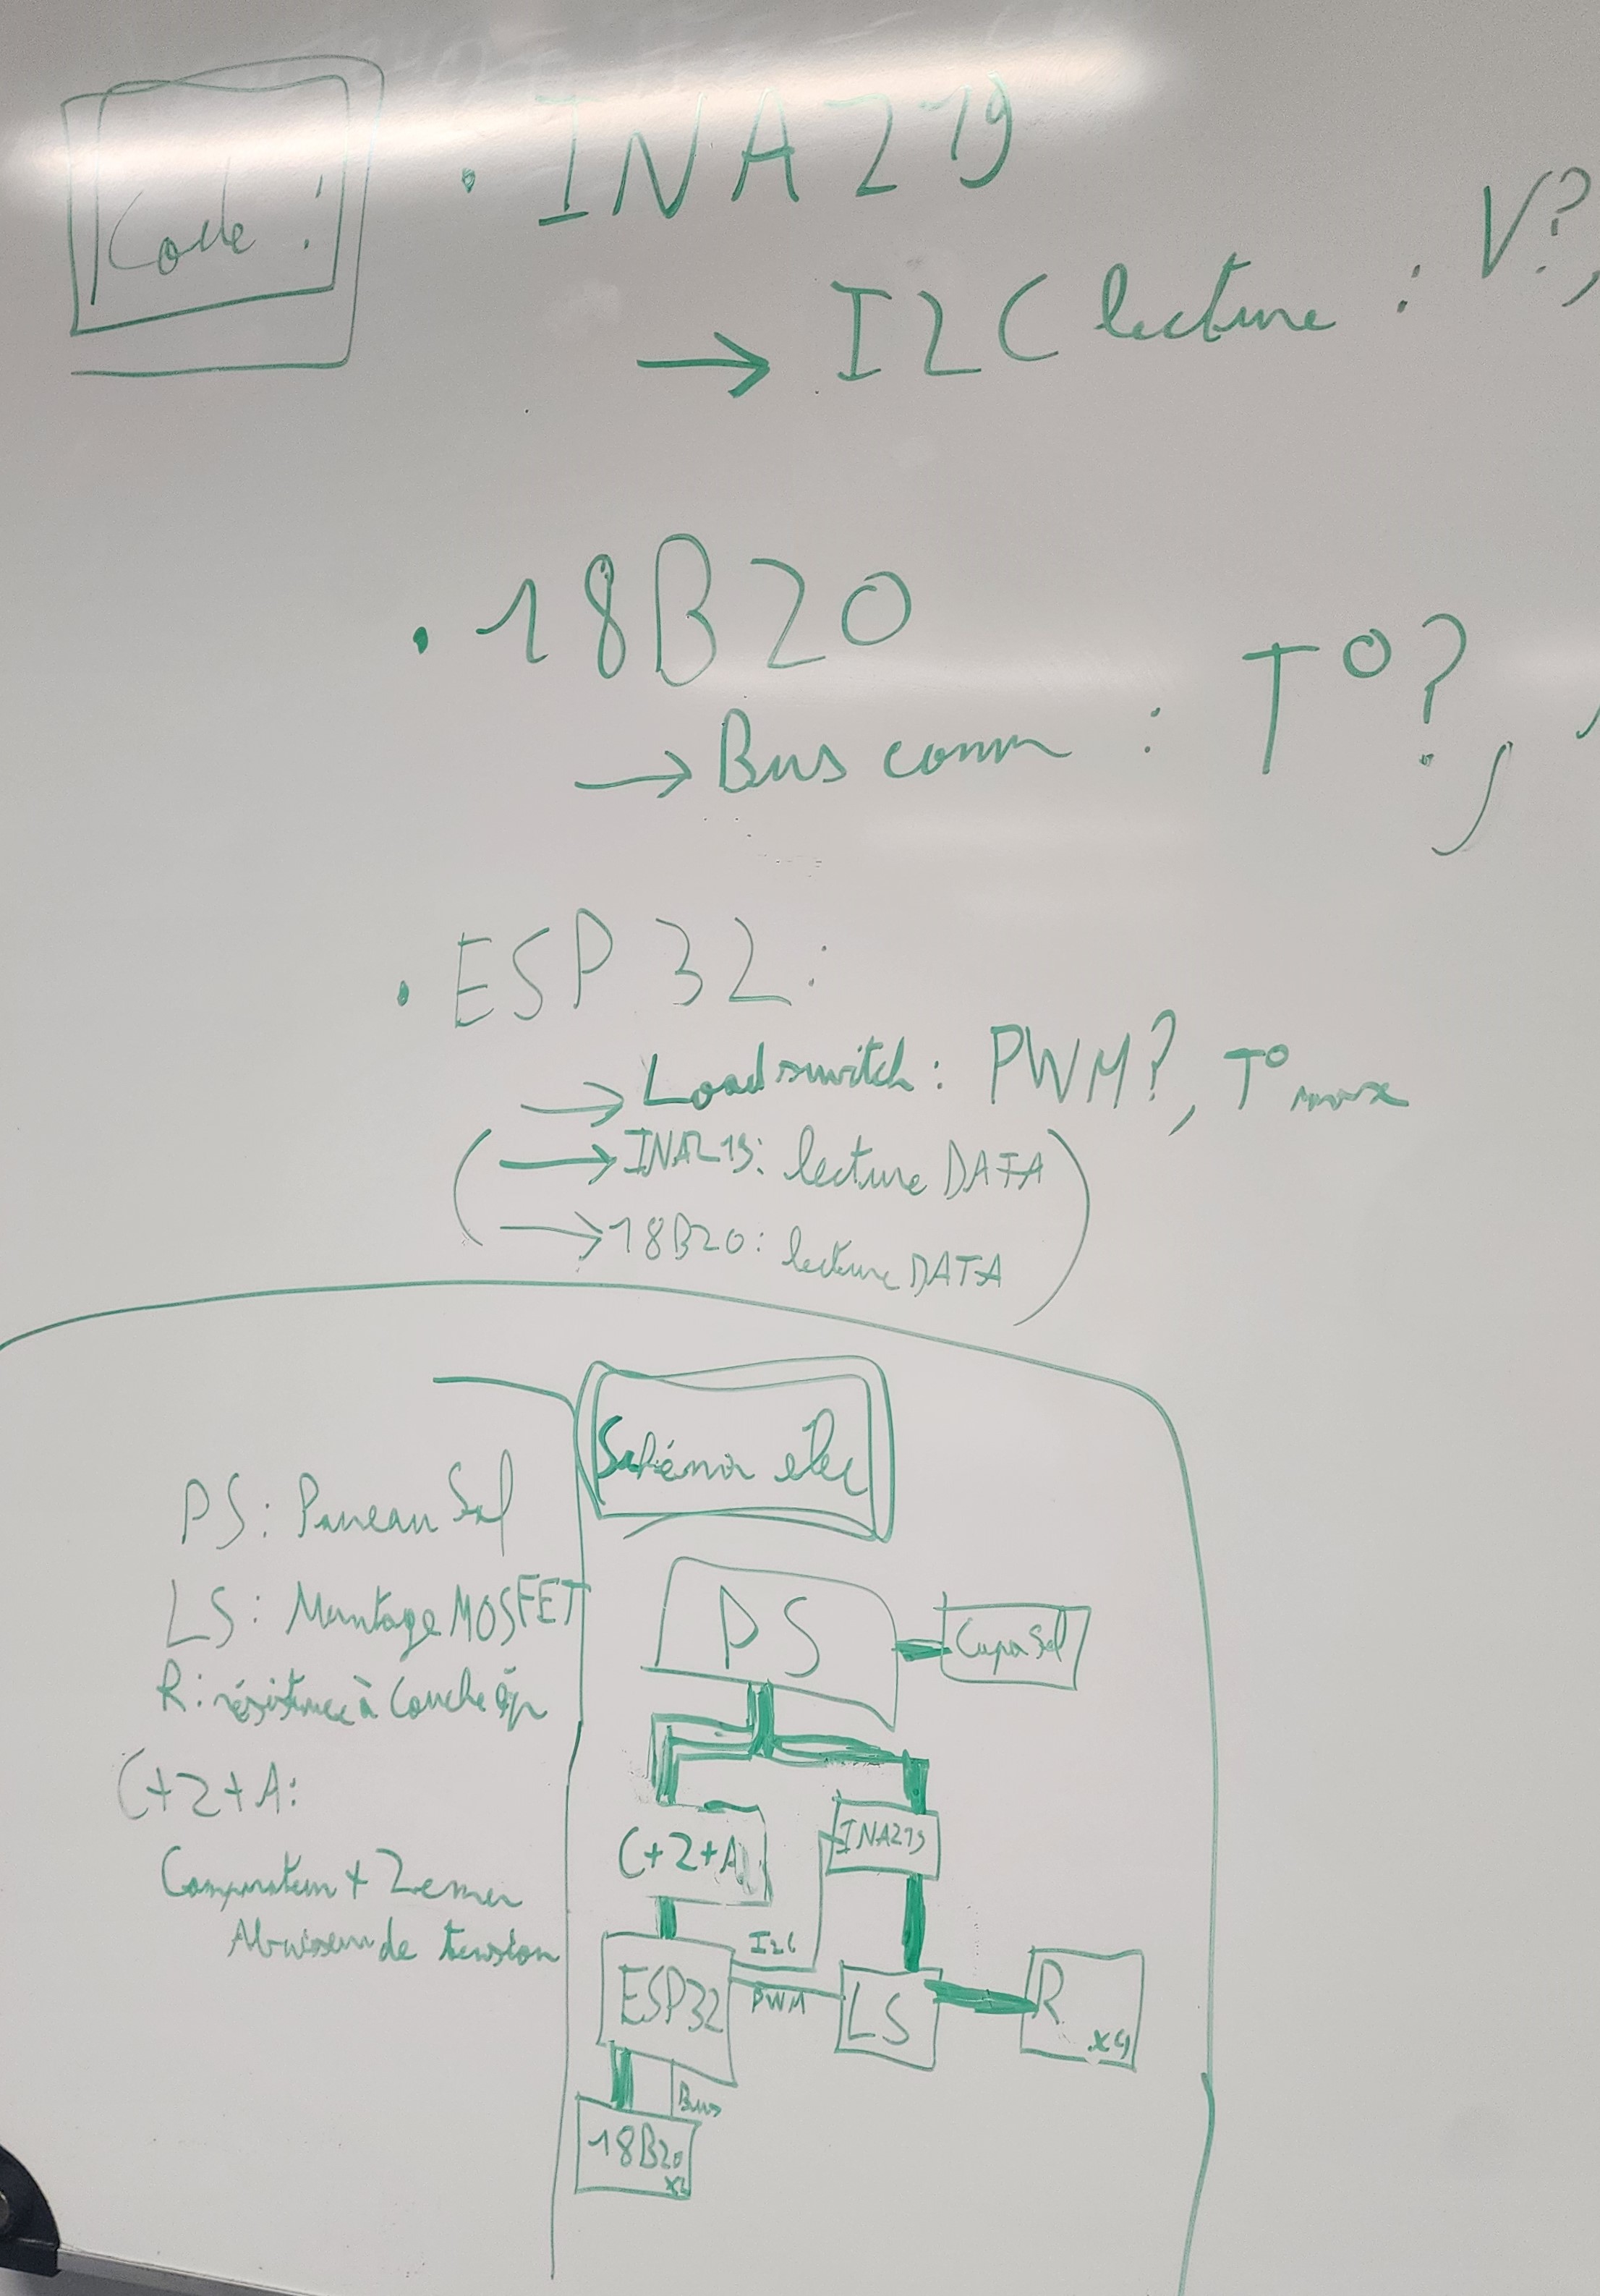 Code :
• INA219
→ I2C lecture : V?,
• 18B20
→ Bus comm : T°?,
• ESP32:
→ Loadswitch : PWM?, T° max
( → INA219: lecture DATA
→ 18B20: lecture DATA )
Schéma élec
PS: Panneau Sol
LS: Montage MOSFET
R: résistance à couche
C+Z+A:
Comparateur + Zener
Abaisseur de tension
PS
Capa Sol
C+Z+A
INA219
I2C
ESP32
PWM
LS
R
x4
Bus
18B20
x2